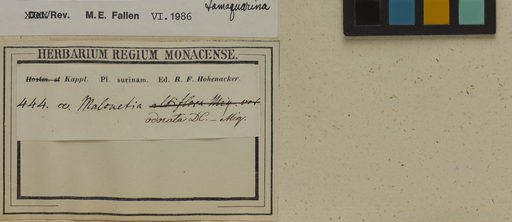 tamaquarina
Det./Rev. M. E. Fallen VI. 1986
HERBARIUM REGIUM MONACENSE.
Hostm. et Kappl. Pl. surinam. Ed. R. F. Hohenacker.
444. a Malouetia albiflora Miq. var
odorata DC. — Miq.